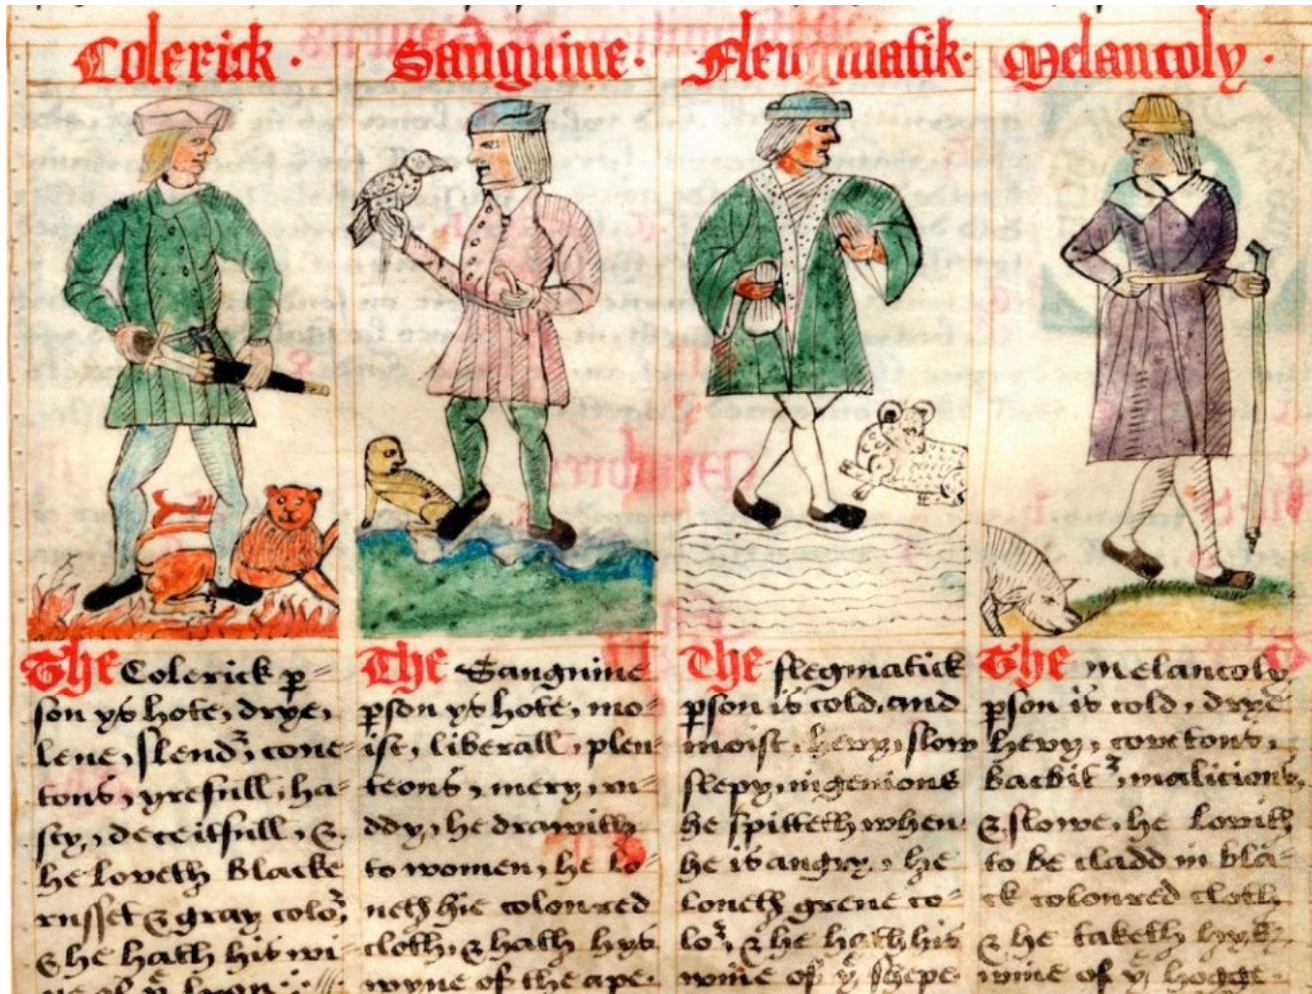 Colerick ·
The Colerick p=
son ys hote, drye,
lene, slend', cove=
tous, yrefull, ha=
sty, deceitfull, &
he loveth blacke
russet & gray colo',
& he hath his wi=
ne of yͤ lyon
Sanguine ·
The Sanguine
pson ys hote, mo=
ist, liberall, plen
teous, mery, ru=
ddy, he drawith
to women, he lo=
veth hie coloured
cloth, & hath hys
wyne of the ape.
Flewgmatik ·
The flegmatick
pson is cold, and
moist, hevy, slow
slepy, ingenious
he spitteth when
he is angry, he
loueth grene co=
lo', & he hath his
wine of yͤ shepe.
Melancoly ·
The melancoly
pson is cold, drye
hevy, covetous,
backbit', malicious,
& slowe, he lovith
to be cladd in bla=
ck coloured cloth
& he taketh hys
wine of yͤ hogge.